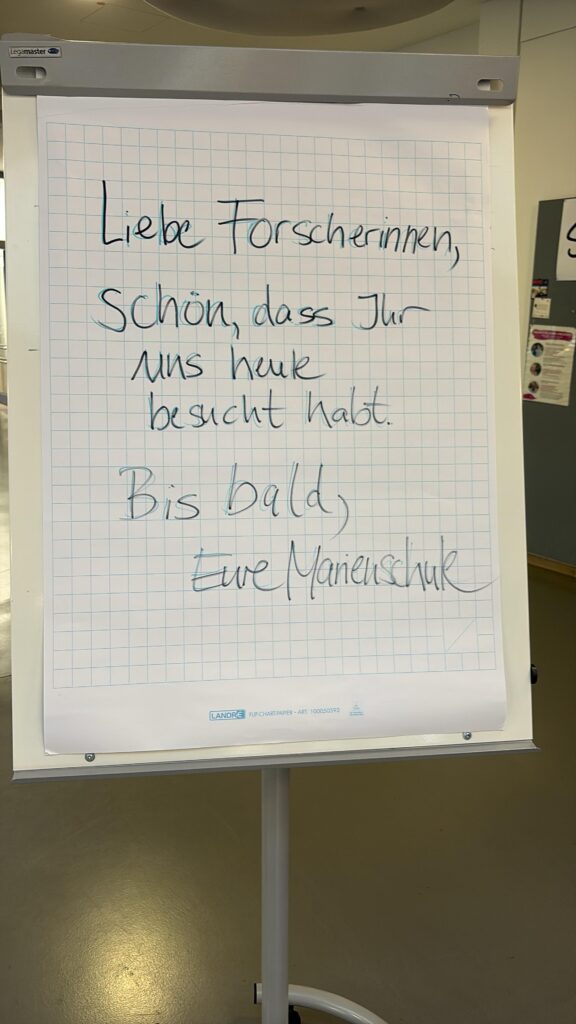 Legamaster
Liebe Forscherinnen,
schön, dass Ihr
uns heute
besucht habt.
Bis bald,
Eure Marienschule
LANDRÉ FLIP-CHARTPAPIER - ART. 100050592